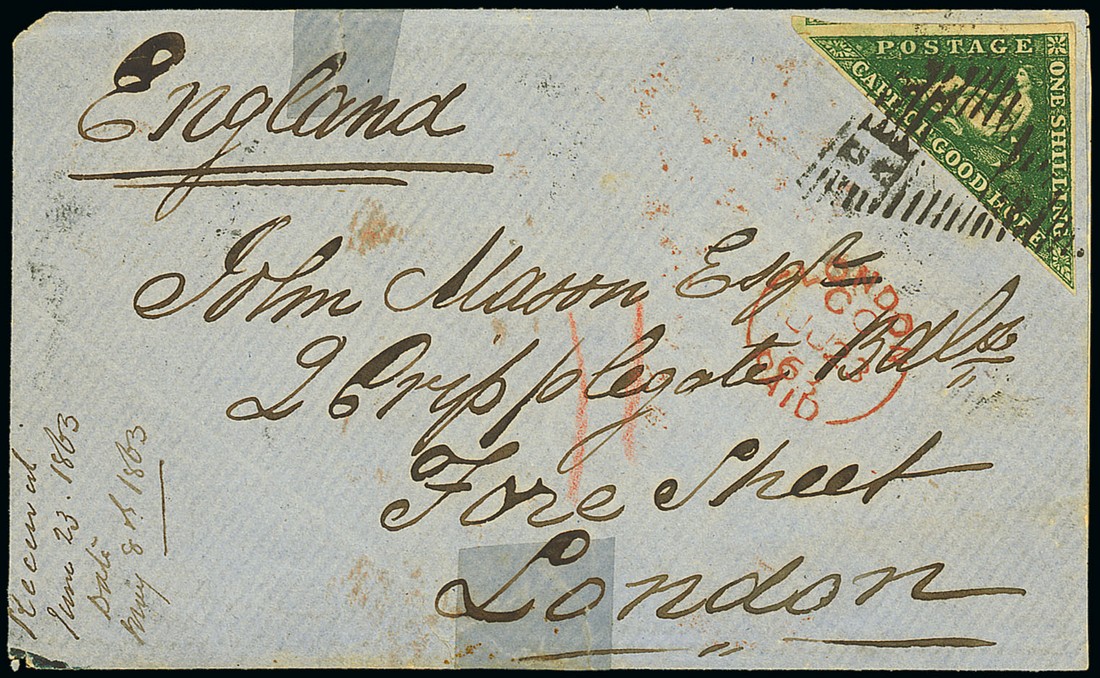 England
POSTAGE
ONE SHILLING
CAPE OF GOOD HOPE
John Mason Esqre
2 Cripplegate Bdls
Fore Street
London
LONDON
CC
JU 23
63
PAID
Received
June 23. 1863
Date
May 8th 1863